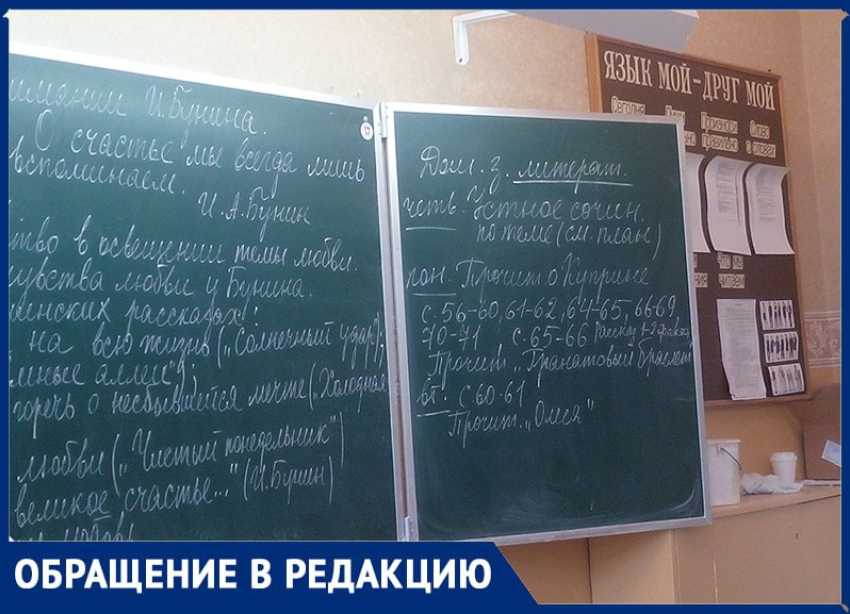 И. Бунина.
О счастье мы всегда лишь
вспоминаем.
И.А. Бунин
в освещении темы любви.
любви у Бунина.
рассказах:
на всю жизнь („Солнечный удар");
горечь о несбывшейся мечте („Холодная
любви („Чистый понедельник")
великое счастье..." (И. Бунин)
Дом. з. литерат.
четв. Устное сочин.
по теме (см. план)
пон. Прочит. о Куприне
с. 56-60, 61-62, 64-65, 66-69,
70-71 с. 65-66 Рассказ
Прочит. „Гранатовый браслет
вт. с. 60-61
Прочит. „Олеся"
ЯЗЫК МОЙ-ДРУГ МОЙ
Сегодня
Произноси Слово
правильно о словах
Что мы
читаем
ОБРАЩЕНИЕ В РЕДАКЦИЮ